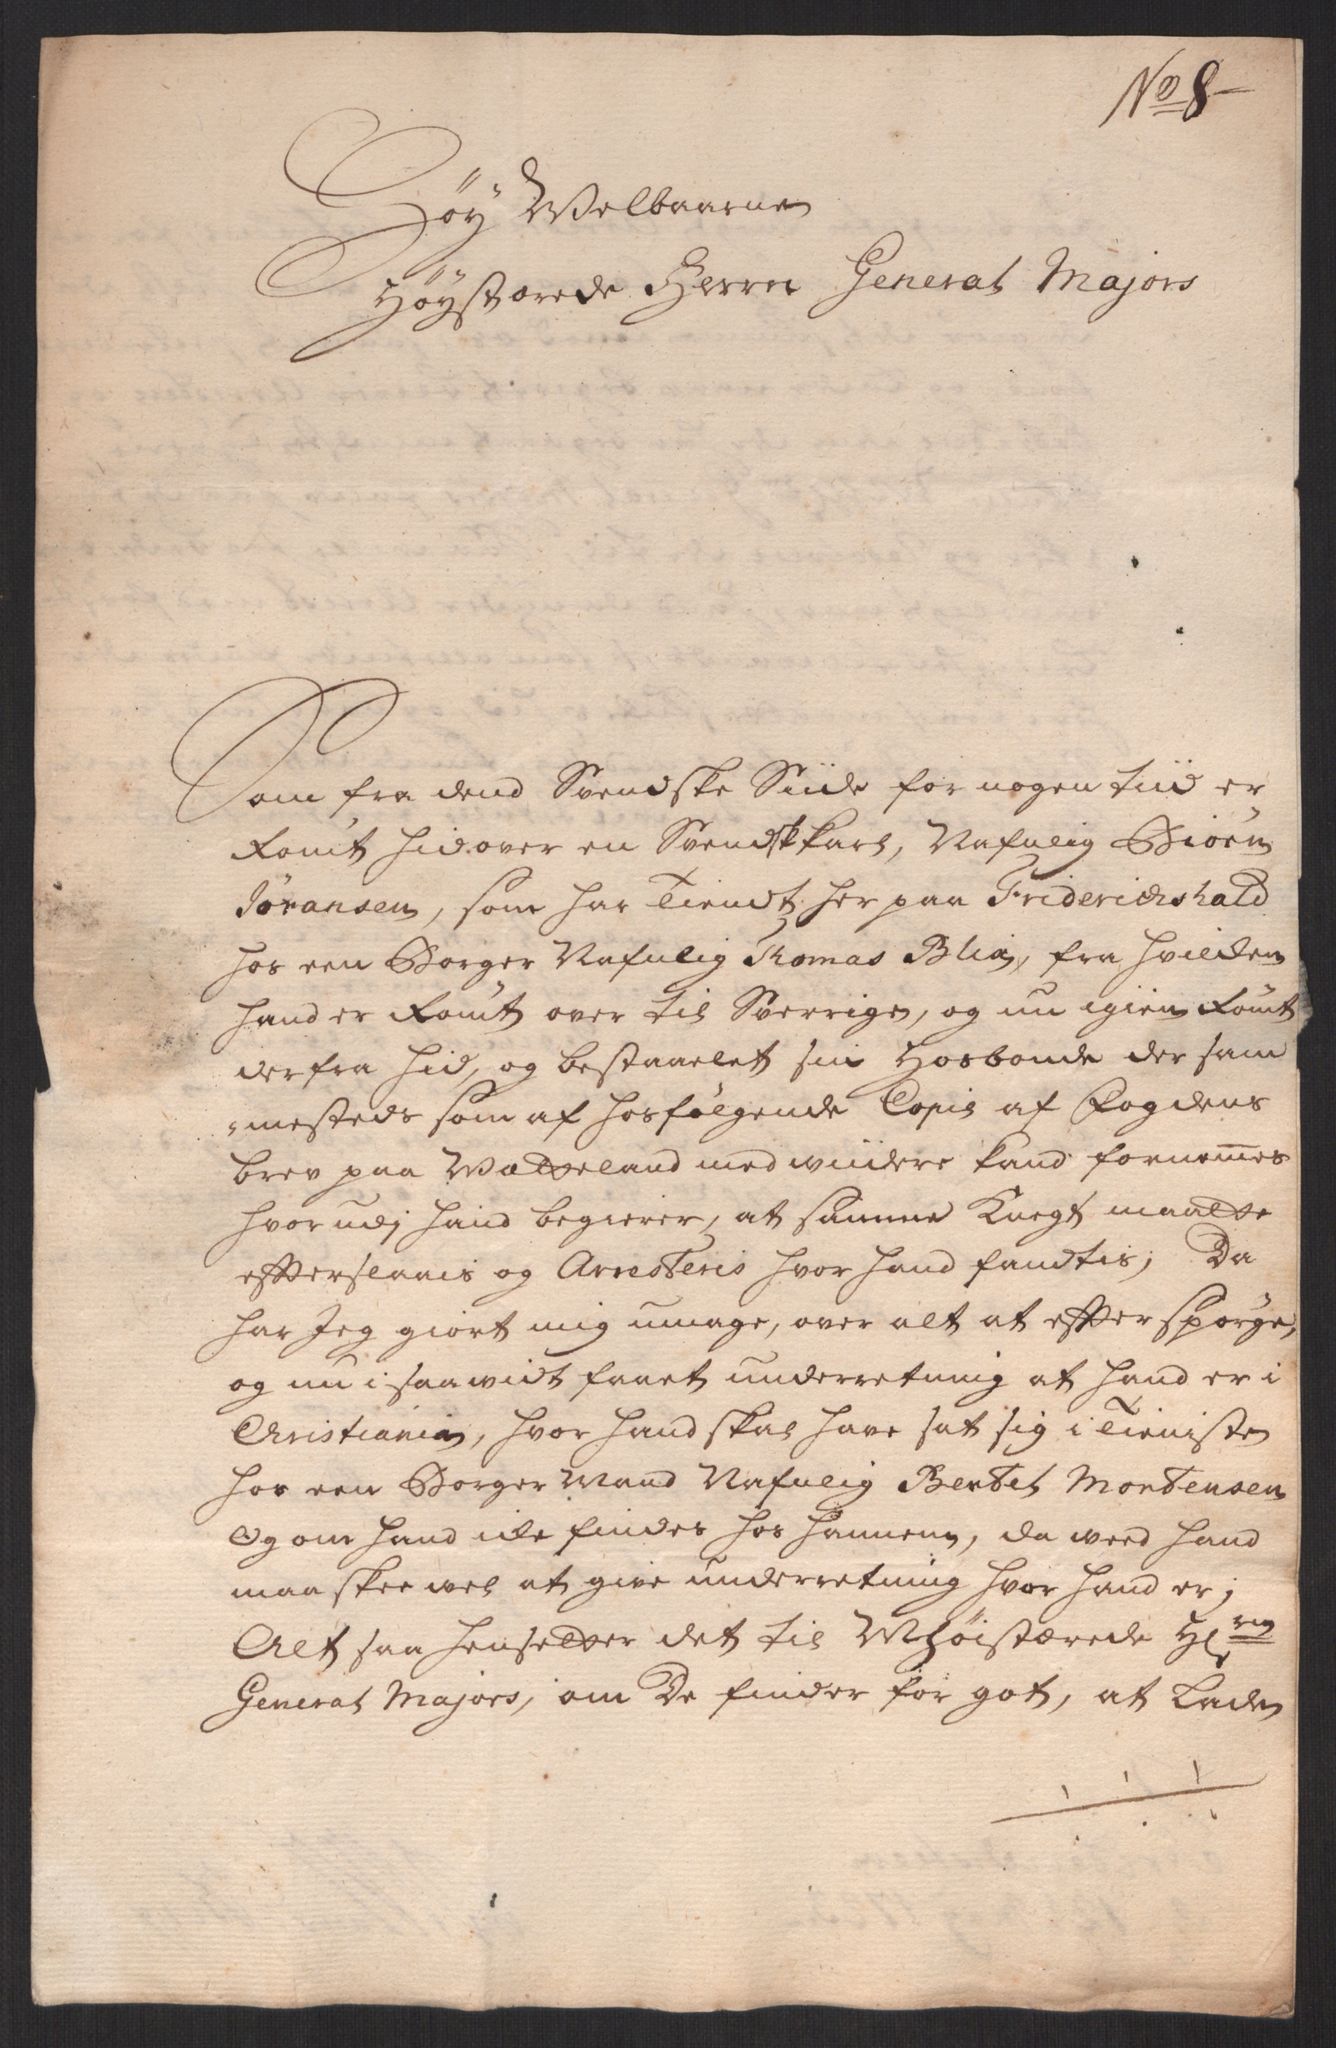 No 8
Høy Welbaarne
Høystærede Herre General Majors
Som fra dend Svendske Siide for nogen tiid er
komt hidover en Svendsk karl, Nafnlig Biørn
Jøransen, som har Tiendt her paa Friderichshald
hos een Borger Nafnlig Thomas Blix, fra hvilcken
hand er komt over til Sverrige, og nu igien komt
derfra hid, og bestaalet sin Hosbonde der sam¬
mesteds som af hosfølgende Copie af Fogdens
brev paa Wætteland med wiidere kand fornemmes
hvorudj hand begierer, at samme Knegt maatte
effterslaais og Arresteris hvor hand fandtis; Da
har Jeg giort mig umage, over alt at effterspørge,
og nu i saa widt faaet underretning at hand er i
Christiania, hvor hand skal have sat sig i Tieniste
hos een Borger Mand Nafnlig Bertel Mortensen
Og om hand icke findes hos hannem, da weed hand
maa skee wel at give underretning hvor hand er;
Alt saa henstetter det til Whøistærede Hr
General Majors, om De finder for got, at Lade